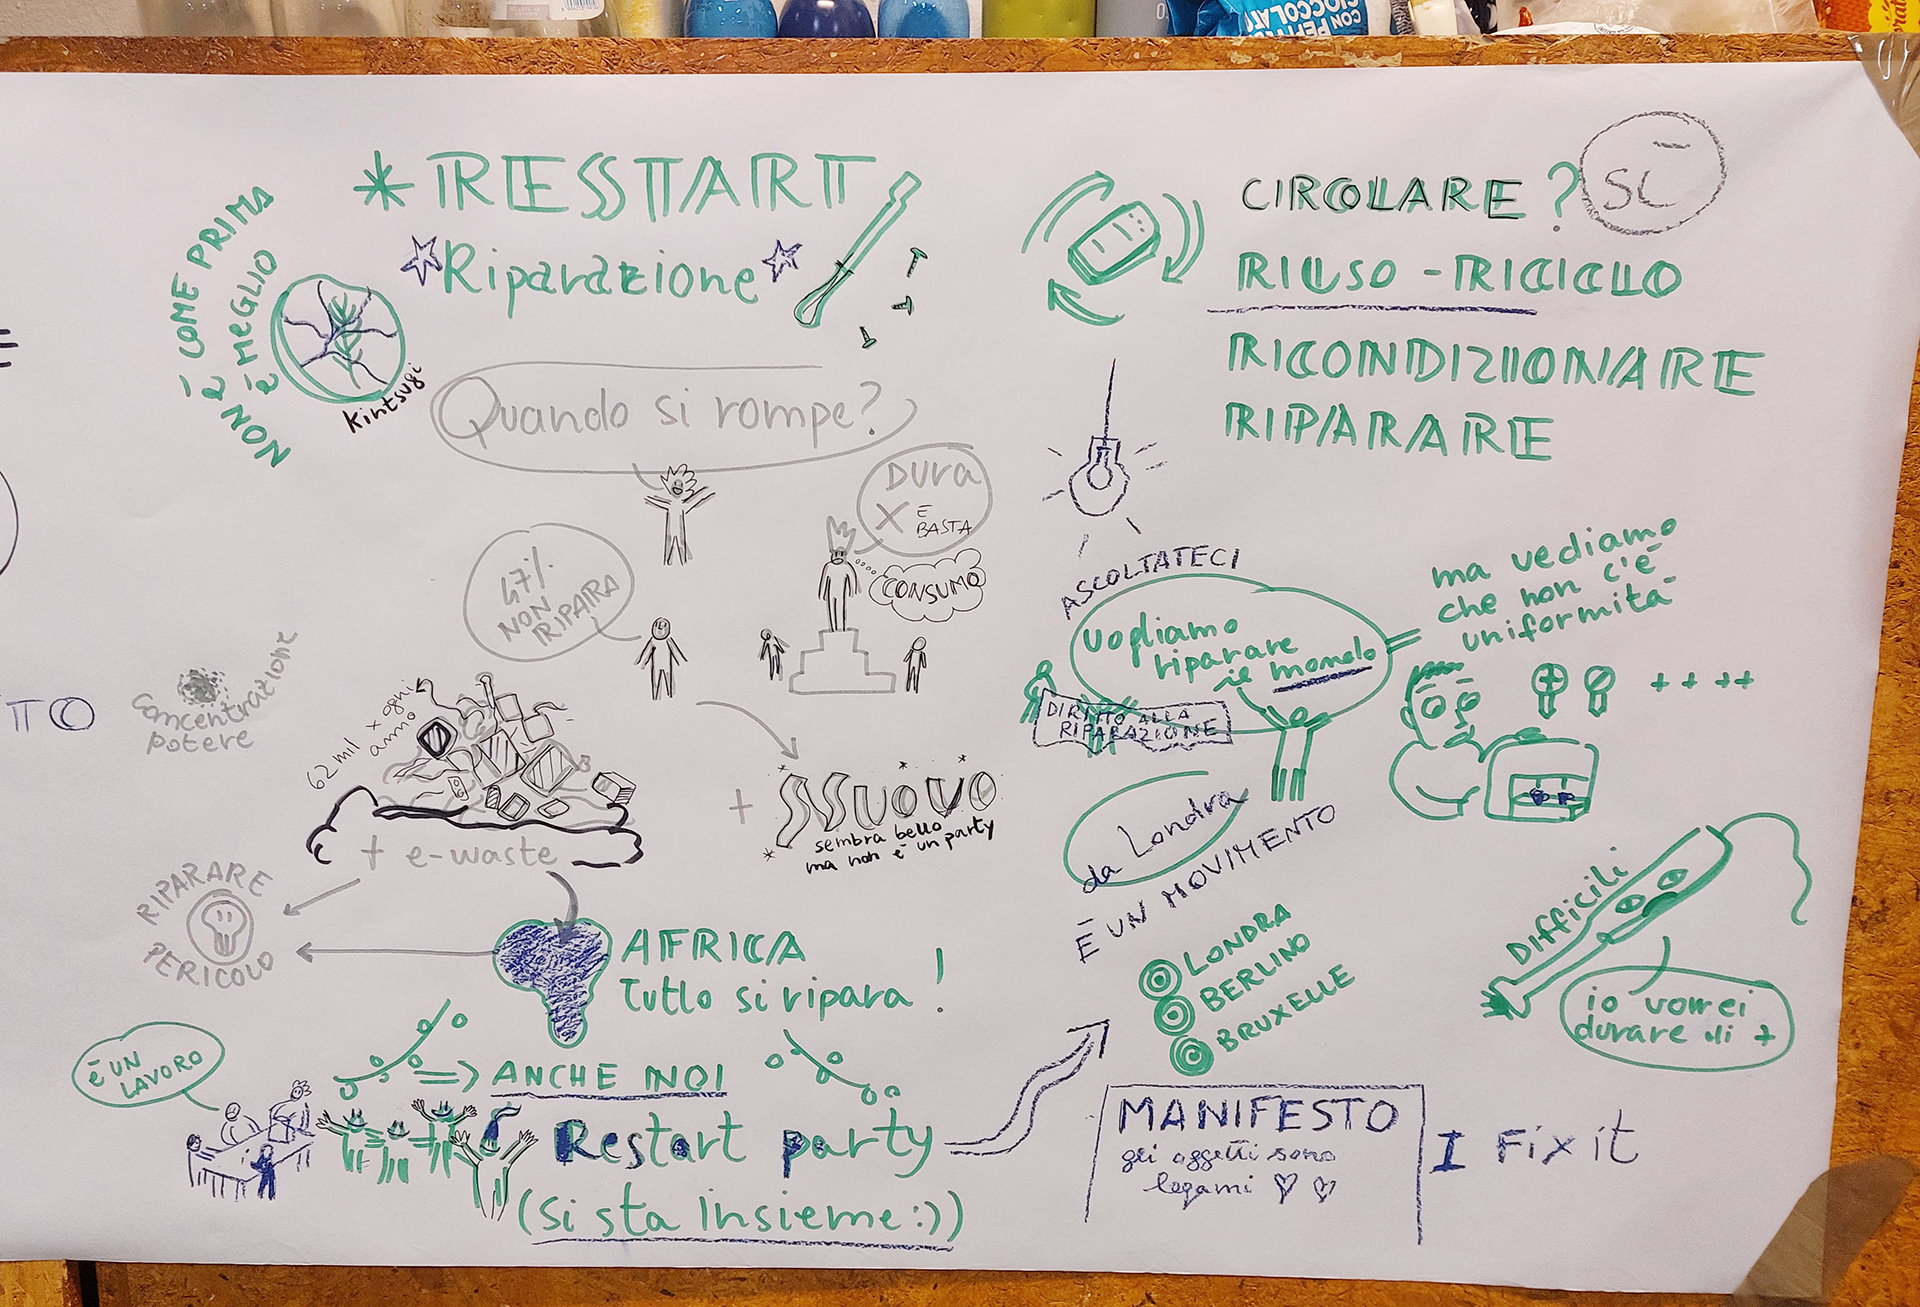 CON PEPITE
CIOCCOLATO
* RESTART
Riparazione
NON È COME PRIMA
È MEGLIO
kintsugi
Quando si rompe?
DURA
X E
BASTA
CONSUMO
47%
NON
RIPARA
TTO
Concentrazione
potere
62 mil x ogni
anno
+ e-waste
+ NUOVO
sembra bello
ma non è un party
RIPARARE
PERICOLO
AFRICA
Tutto si ripara!
È UN
LAVORO
=> ANCHE NOI
Restart party
(Si sta Insieme:))
CIRCOLARE? SÌ
RIUSO - RICICLO
RICONDIZIONARE
RIPARARE
ASCOLTATECI
Vogliamo
riparare
il mondo
DIRITTO ALLA
RIPARAZIONE
ma vediamo
che non c'è
uniformità
+ + + +
da Londra
È UN MOVIMENTO
LONDRA
BERLINO
BRUXELLE
Difficili
io vorrei
durare di +
MANIFESTO
gli oggetti sono
legami
I Fix it